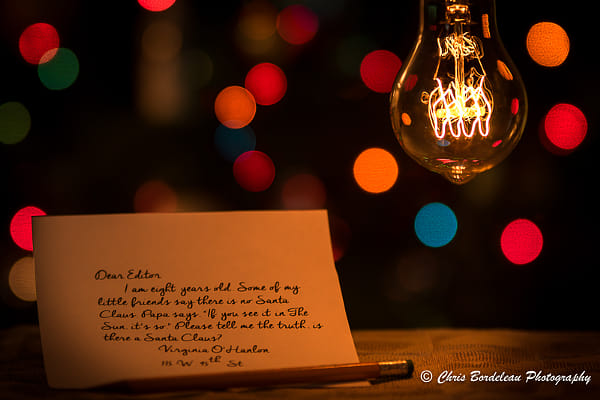 Dear Editor
I am eight years old. Some of my
little friends say there is no Santa
Claus. Papa says, "If you see it in The
Sun, it's so." Please tell me the truth, is
there a Santa Claus?
Virginia O'Hanlon
115 W 95th St
© Chris Bordeleau Photography